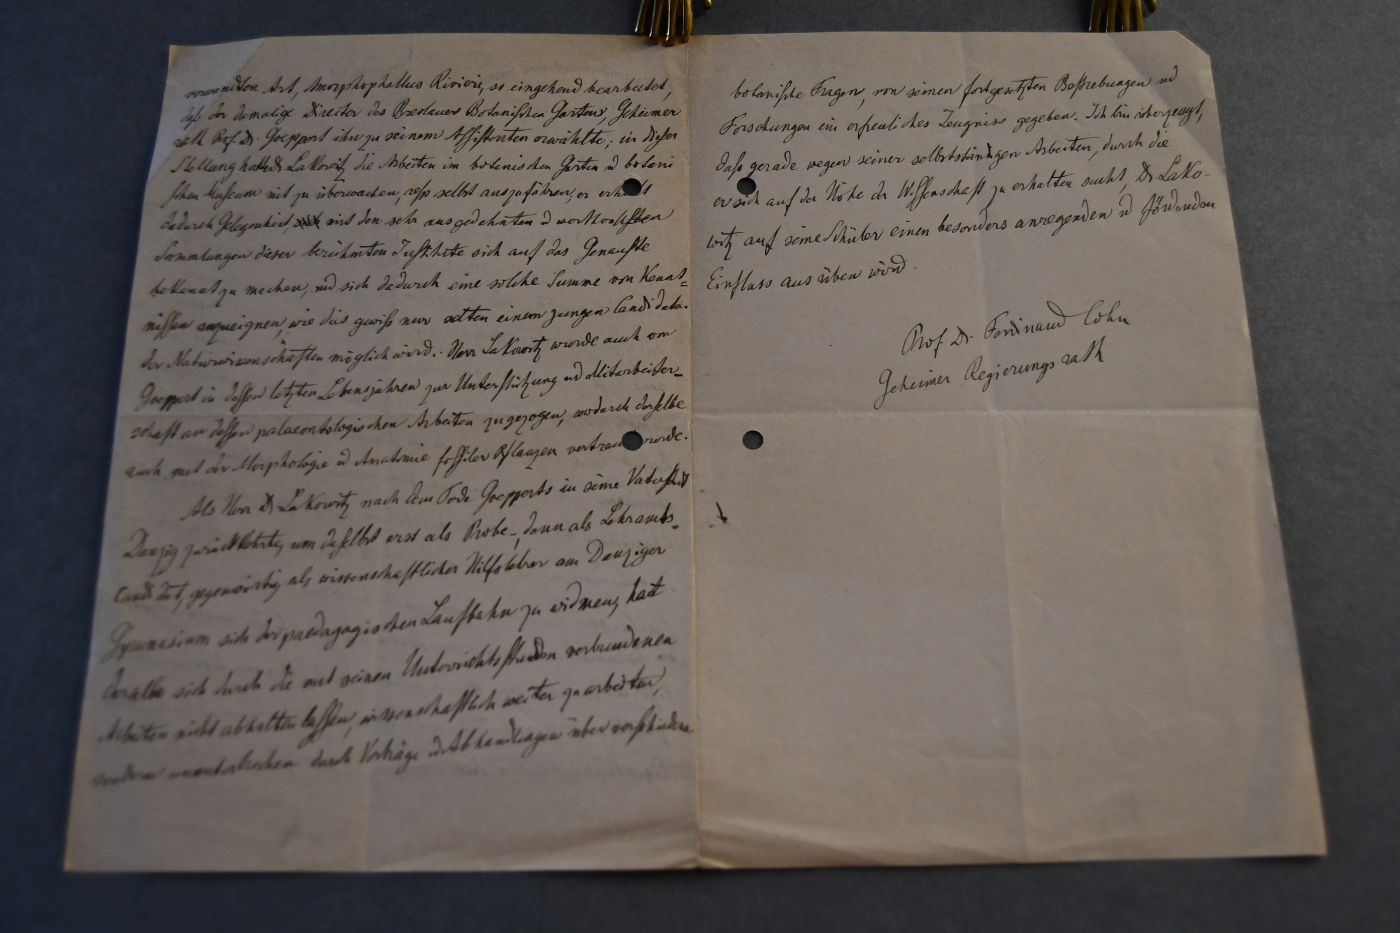 verwandten Art, Amorphophallus Rivieri, so eingehend bearbeitet,
daß der damalige Director des Breslauer Botanischen Gartens, Geheimer
rath Prof. Dr. Goeppert ihn zu seinem Assistenten erwählte; in dieser
Stellung hatte Dr Lakowitz die Arbeiten im botanischen Garten u botani
schen Museum mit zu überwachen, resp selbst auszuführen; er erhielt
dadurch Gelegenheit, mit den sehr ausgedehnten u werthvollsten
Sammlungen dieser berühmten Institute sich auf das Genauste
bekannt zu machen, und sich dadurch eine solche Summe von Kennt=
nissen anzueignen, wie dies gewiß nur selten einem jungen Candidaten
der Naturwissenschaften möglich wird. Herr Lakowitz wurde auch von
Goeppert in dessen letzten Lebensjahren zur Unterstützung und Mitarbeiter=
schaft an dessen palaeontologischen Arbeiten zugezogen, wodurch derselbe
auch mit der Morphologie u Anatomie fossiler Pflanzen vertraut wurde.
Als Herr Dr Lakowitz nach dem Tode Goepperts in seine Vaterstadt
Danzig zurückkehrte, um daselbst erst als Probe-, dann als Lehramts-
candidat, gegenwärtig als wissenschaftlicher Hilfslehrer am Danziger
Gymnasium sich der paedagogischen Laufbahn zu widmen, hat
derselbe sich durch die mit seinen Unterrichtsstunden verbundenen
Arbeiten nicht abhalten lassen, wissenschaftlich weiter zu arbeiten,
sondern ununterbrochen durch Vorträge u Abhandlungen über verschiedene
botanische Fragen, von seinen fortgesetzten Bestrebungen und
Forschungen ein erfreuliches Zeugniss gegeben. Ich bin überzeugt,
daß gerade wegen seiner selbstständigen Arbeiten, durch die
er sich auf der Höhe der Wissenschaft zu erhalten sucht, Dr Lako-
witz auf seine Schüler einen besonders anregenden u fördernden
Einfluss ausüben wird.
Prof Dr. Ferdinand Cohn
Geheimer Regierungsrath